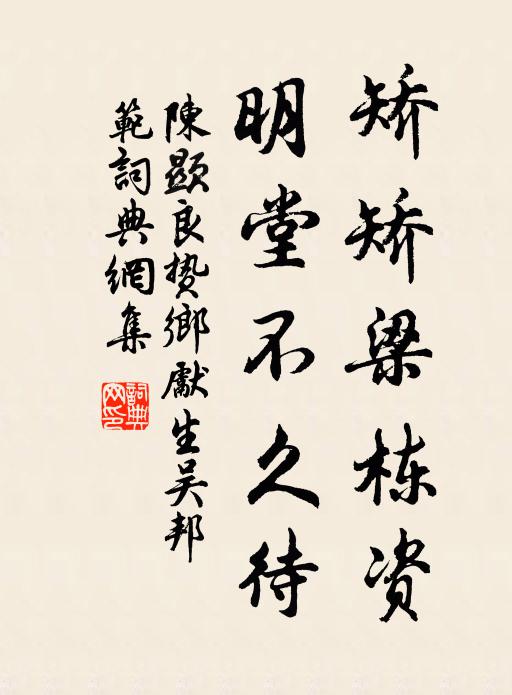 矫矫梁栋资
明堂不久待
陳顯良贄鄉獻生吴邦
範詞典網集
詞典网印